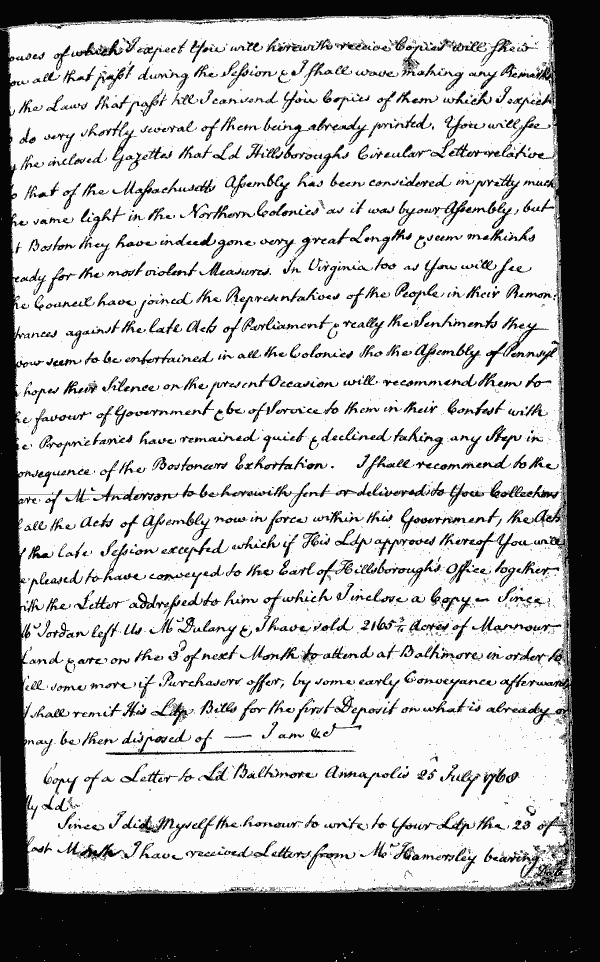 ouses of which I expect You will herewith receive Copies will shew
ou all that past during the Session & I shall wave making any Remarks
the Laws that past till I can send You Copies of them which I expect
do very shortly several of them being already printed. You will see
the inclosed Gazettes that Ld Hillsboroughs Circular Letter relative
o that of the Massachusetts Assembly has been considered in pretty much
he same light in the Northern Colonies as it was by our Assembly, but
t Boston they have indeed gone very great Lengths & seem methinks
eady for the most violent Measures. In Virginia too as You will see
he Council have joined the Representatives of the People in their Remon:
trances against the late Acts of Parliament & really the Sentiments they
vow seem to be entertained in all the Colonies tho the Assembly of Pennsyl.a
hopes their Silence on the present Occasion will recommend them to
he favour of Government & be of Service to them in their Contest with
e Proprietaries have remained quiet & declined taking any Step in
onsequence of the Bostoneers Exhortation. I shall recommend to the
are of Mr Anderson to be herewith sent or delivered to You Collections
f all the Acts of Assembly now in force within this Government, the Acts
f the late Session excepted which if His Ldp approves thereof You will
e pleased to have conveyed to the Earl of Hillsborough's Office together
ith the Letter addressed to him of which I inclose a Copy — Since
Mr Jordan left Us Mr Dulany & I have sold 2165¾ Acres of Mannour
Land & are on the 3d of next Month to attend at Baltimore in order to
ell some more if Purchasers offer, by some early Conveyance afterwards
I shall remit His Ldp Bills for the first Deposit on what is already or
may be then disposed of — I am &c
Copy of a Letter to Ld Baltimore Annapolis 25 July 1768
My Ld
Since I did Myself the honour to write to Your Ldp the 23d of
last Month I have received Letters from Mr Hamersley bearing
Date